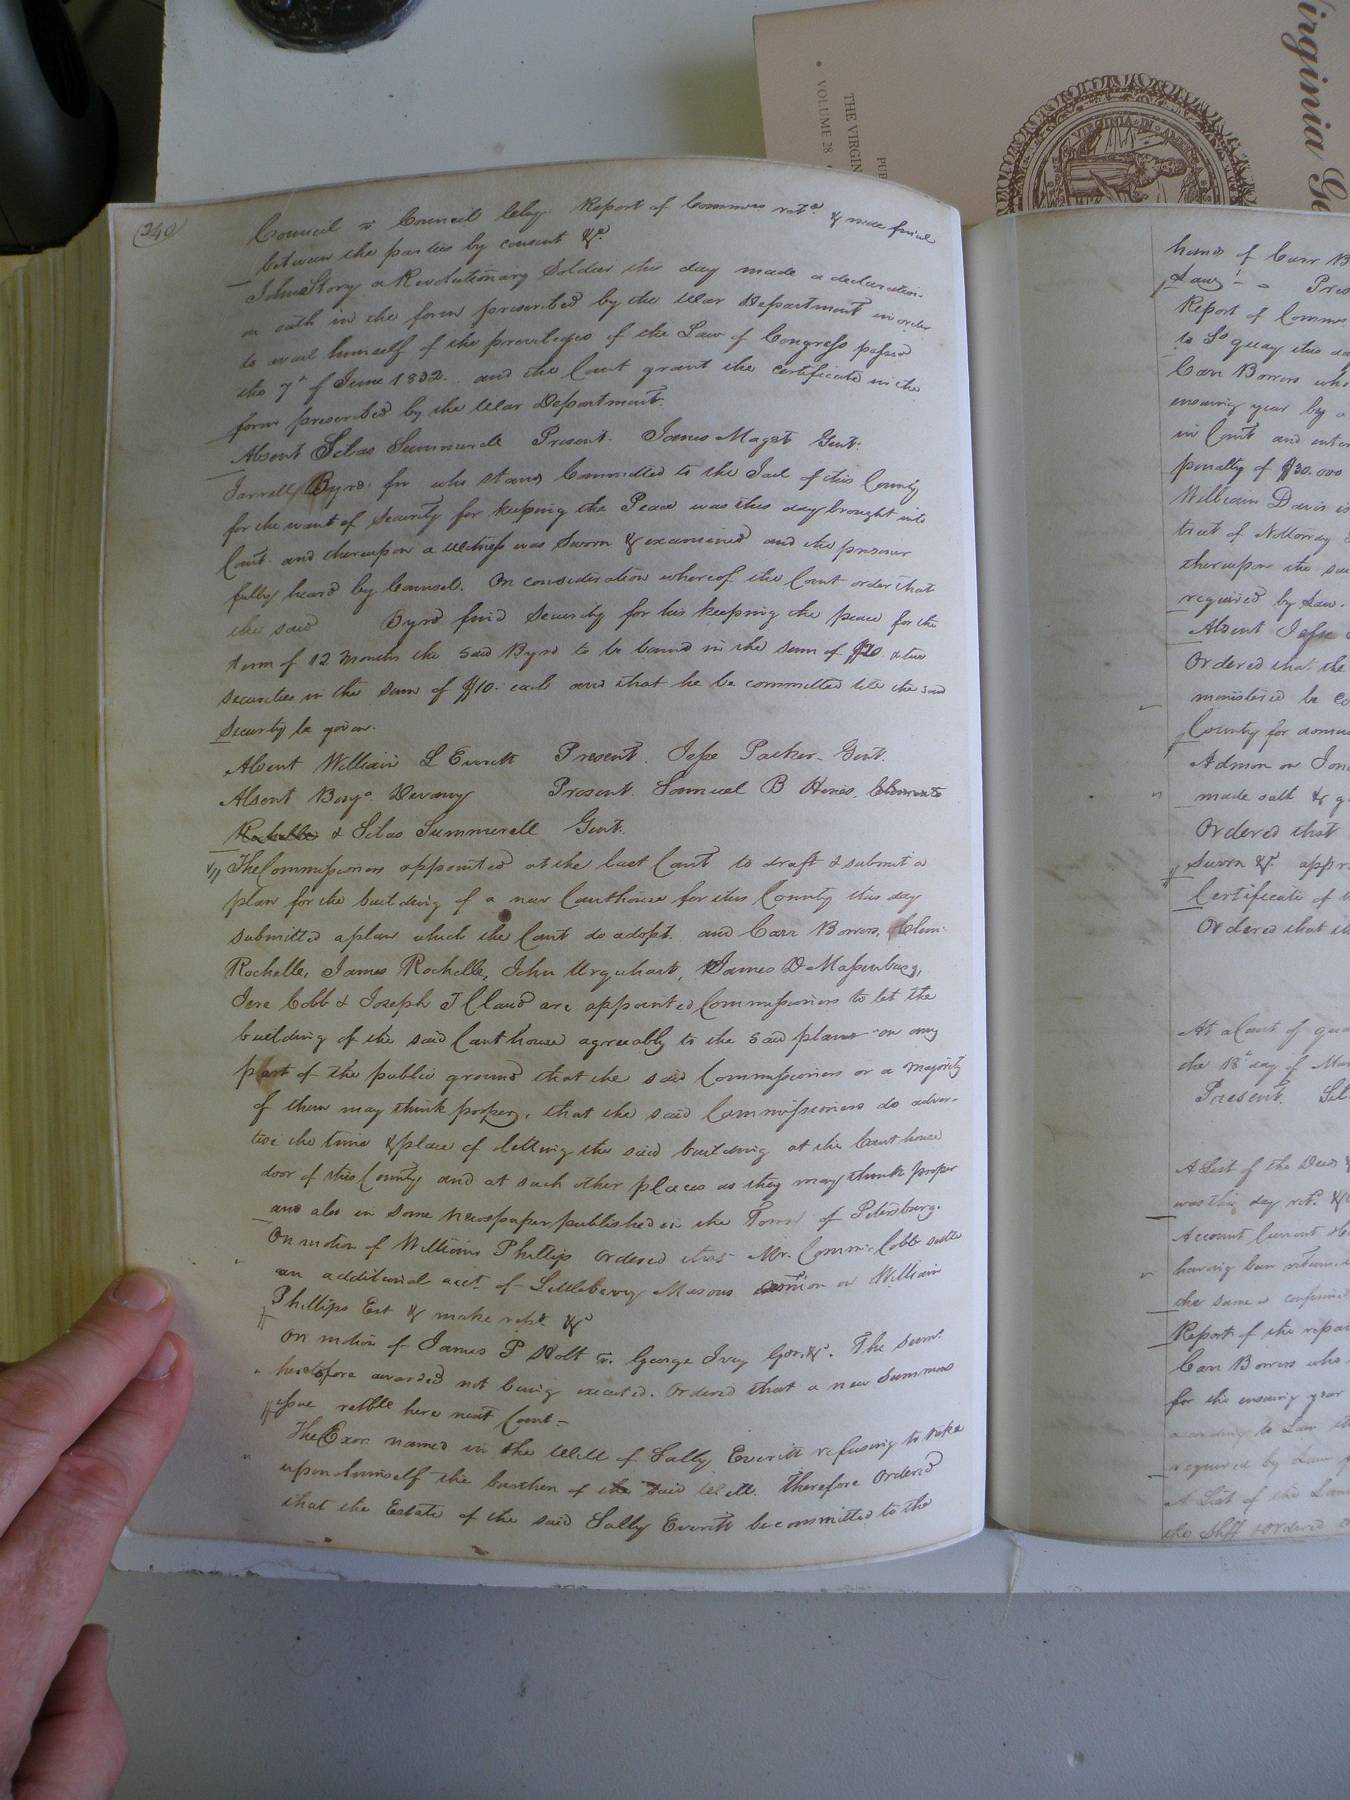 (240)
Council vs Council Chy. Report of Commrs retd. & made final
between the parties by consent &c.
John Story a Revolutionary Soldier this day made a declaration
on oath in the form prescribed by the War Department in order
to avail himself of the privileges of the Law of Congress passed
the 7th of June 1832. and the Court grant the certificate in the
form prescribed by the War Department.
Absent Silas Summerell Present. James Maget Gent.
Jarrell Byrd who stands Committed to the Jail of this County
for the want of Security for keeping the Peace was this day brought into
Court and thereupon a witness was Sworn & examined and the prisoner
fully heard by Counsel. On consideration whereof the Court order that
the said Byrd find Security for his keeping the peace for the
term of 12 Months the said Byrd to be bound in the sum of $20 & two
securities in the sum of $10. each and that he be committed till the said
Security be given.
Absent William L Everitt Present. Jesse Parker Gent.
Absent Benja. Devany Present. Samuel B Hines, Clements
Rochelle & Silas Summerell Gent.
The Commissioners appointed at the last Court to draft & submit a
plan for the building of a new Courthouse for this County this day
submitted a plan which the Court do adopt. and Carr Bowers, Clem.
Rochelle, James Rochelle, John Urquhart, James D Massenburg,
Jere Cobb & Joseph T Claud are appointed Commissioners to let the
building of the said Courthouse agreeably to the said plan on any
part of the public ground that the said Commissioners or a majority
of them may think proper, that the said Commissioners do adver-
tise the time & place of letting the said building at the Courthouse
door of this County and at such other places as they may think proper
and also in some Newspaper published in the Town of Petersburg.
On motion of William Phillips Ordered that Mr. Commr. Cobb settle
an additional acct. of Littleberry Masons admon on William
Phillips Est & make rept. &c
On motion of James P Holt vs. George Ivey Gor. &c. The Sum:
heretofore awarded not being executed. Ordered that a new Summons
issue retble here next Court
The Exor. named in the Will of Sally Everitt refusing to take
upon himself the burthen of the said Will. Therefore Ordered
that the Estate of the said Sally Everitt be committed to the
hands of Carr B
Law Pres
Report of Commrs
to
Carr Bowers who
ensuing year by a
in Court and enter
penalty of $30.000
William Davis is
trict of Nottoway
thereupon the sa
required by Law.
Absent Jesse
Ordered that the
ministered be co
County for
Admon on Jon
made oath & g
Ordered that
Sworn &c. appr
Certificate of
Ordered that
At a Court of qua
the 18th day of Ma
Present. Sil
A List of the Deeds &
was this day retd. &
Account Current
having been returned
the same is confirmed
Report of the
Carr Bowers who
for the ensuing year
according to Law
required by Law
A List of the
the Shff Ordered
Virginia Ge
THE VIRGIN
VOLUME 28
PU
VIRGINIA IN